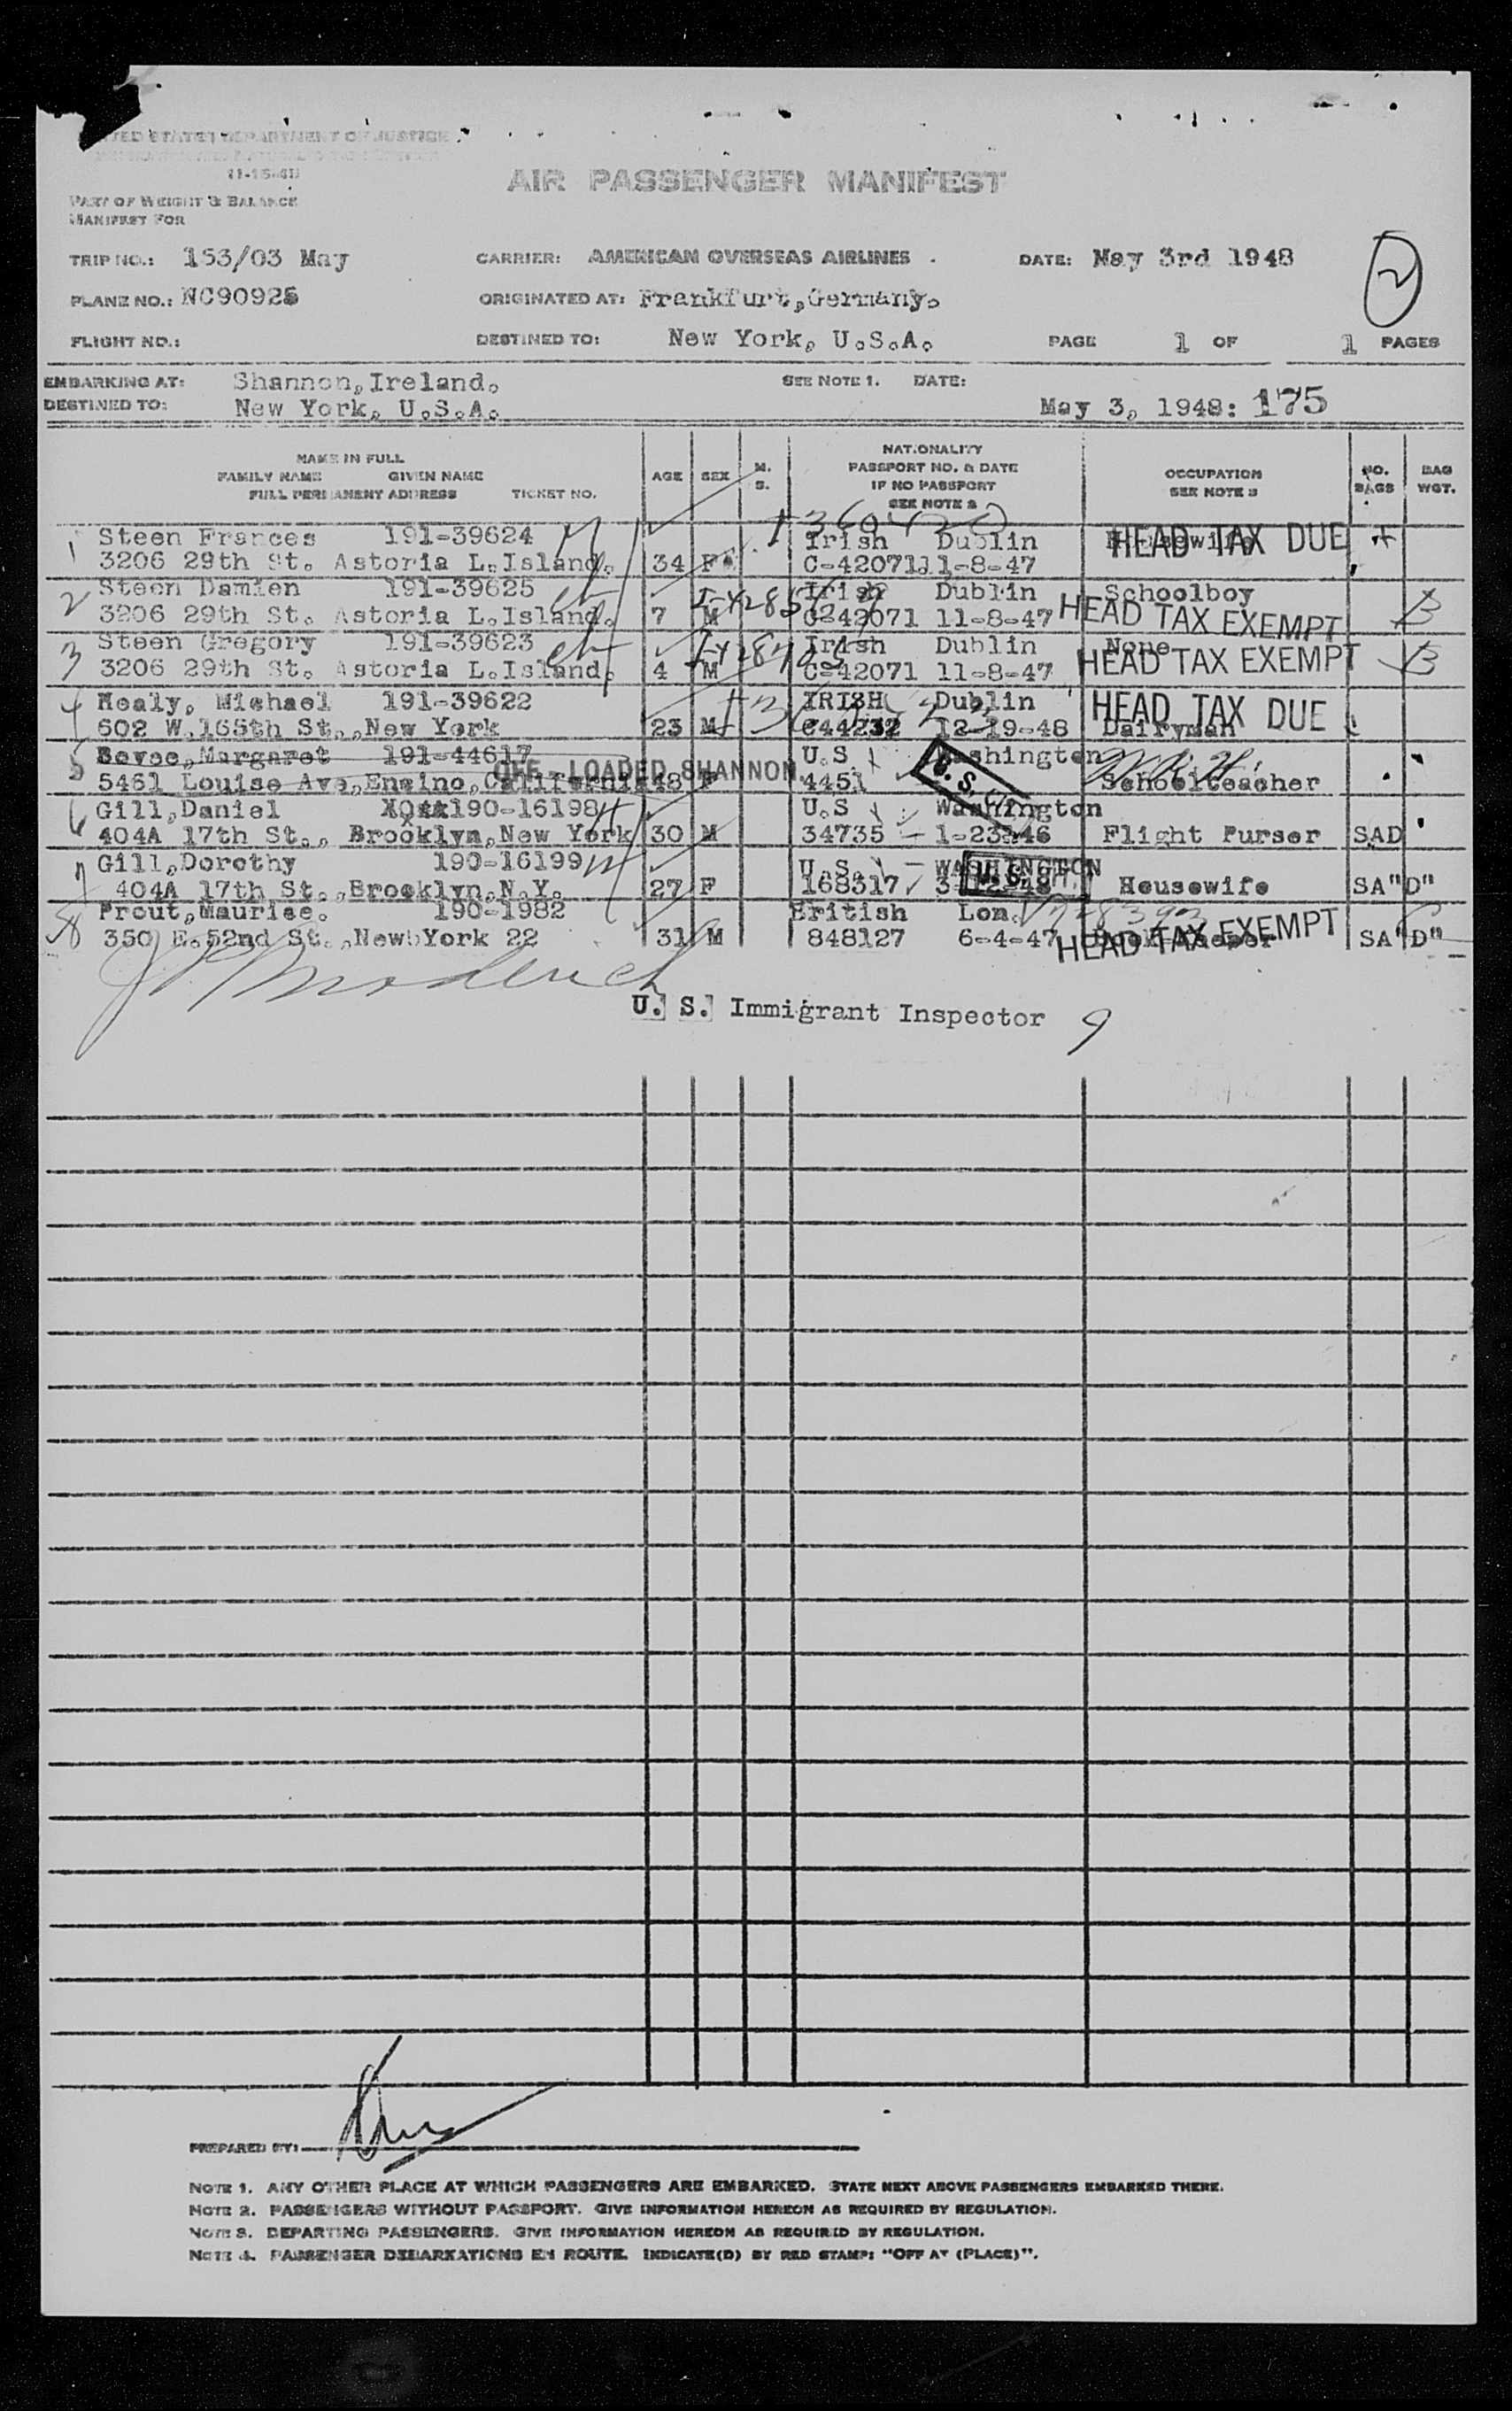 UNITED STATES DEPARTMENT OF JUSTICE
(1-15-41)
AIR PASSENGER MANIFEST
PART OF WEIGHT & BALANCE
MANIFEST FOR
TRIP NO.: 153/03 May CARRIER: AMERICAN OVERSEAS AIRLINES . DATE: May 3rd 1948
2
PLANE NO.: NC90925 ORIGINATED AT: Frankfurt,Germany.
FLIGHT NO.: DESTINED TO: New York, U.S.A. PAGE 1 OF 1 PAGES
EMBARKING AT: Shannon,Ireland. SEE NOTE 1. DATE:
DESTINED TO: New York, U.S.A. May 3, 1948: 175
NAME IN FULL
FAMILY NAME GIVEN NAME
FULL PERMANENT ADDRESS TICKET NO.
AGE SEX M. S.
NATIONALITY
PASSPORT NO. & DATE
IF NO PASSPORT
SEE NOTE 2
OCCUPATION
SEE NOTE 3
NO. BAGS
BAG WGT.
1 Steen Frances 191-39624 Irish Dublin HEAD TAX DUE
3206 29th St. Astoria L.Island. 34 F C-42071 11-8-47
2 Steen Damien 191-39625 Irish Dublin Schoolboy
3206 29th St. Astoria L.Island. 7 M C-42071 11-8-47 HEAD TAX EXEMPT
3 Steen Gregory 191-39623 Irish Dublin None
3206 29th St. Astoria L.Island. 4 M C-42071 11-8-47 HEAD TAX EXEMPT
4 Healy, Michael 191-39622 IRISH Dublin HEAD TAX DUE
602 W.165th St.,New York 23 M C44232 12-19-48 Dairyman
5 Margaret 191-44617 U.S. Washington
5461 Louise Ave,Encino,California 48 F 4451 Schoolteacher
OFF - LOADED SHANNON
U. S.
6 Gill,Daniel 190-16198 U.S. Washington
404A 17th St., Brooklyn,New York 30 M 34735 - 1-23-46 Flight Purser SAD
7 Gill,Dorothy 190-16199 U.S. - WASHINGTON
404A 17th St.,Brooklyn,N.Y. 27 F 168317 Housewife SA"D"
U. S.
8 Prout,Maurice. 190-1982 British Lon.
350 E.52nd St.,New York 22 31 M 848127 6-4-47 HEAD TAX EXEMPT SA"D"
U. S. Immigrant Inspector 9
PREPARED BY:
NOTE 1. ANY OTHER PLACE AT WHICH PASSENGERS ARE EMBARKED. STATE NEXT ABOVE PASSENGERS EMBARKED THERE.
NOTE 2. PASSENGERS WITHOUT PASSPORT. GIVE INFORMATION HEREON AS REQUIRED BY REGULATION.
NOTE 3. DEPARTING PASSENGERS. GIVE INFORMATION HEREON AS REQUIRED BY REGULATION.
NOTE 4. PASSENGER DEBARKATIONS EN ROUTE. INDICATE(D) BY RED STAMP: "OFF AT (PLACE)".